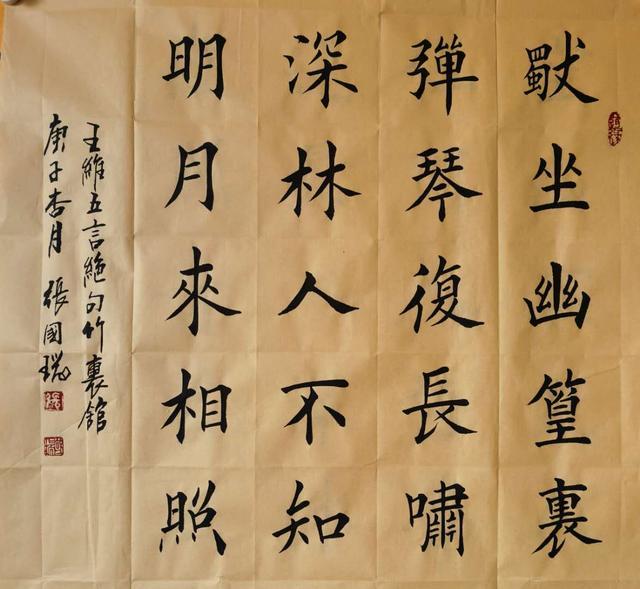 獨坐幽篁裏
彈琴復長嘯
深林人不知
明月來相照
王維五言絶句竹裏館
庚子杏月 張國瑞